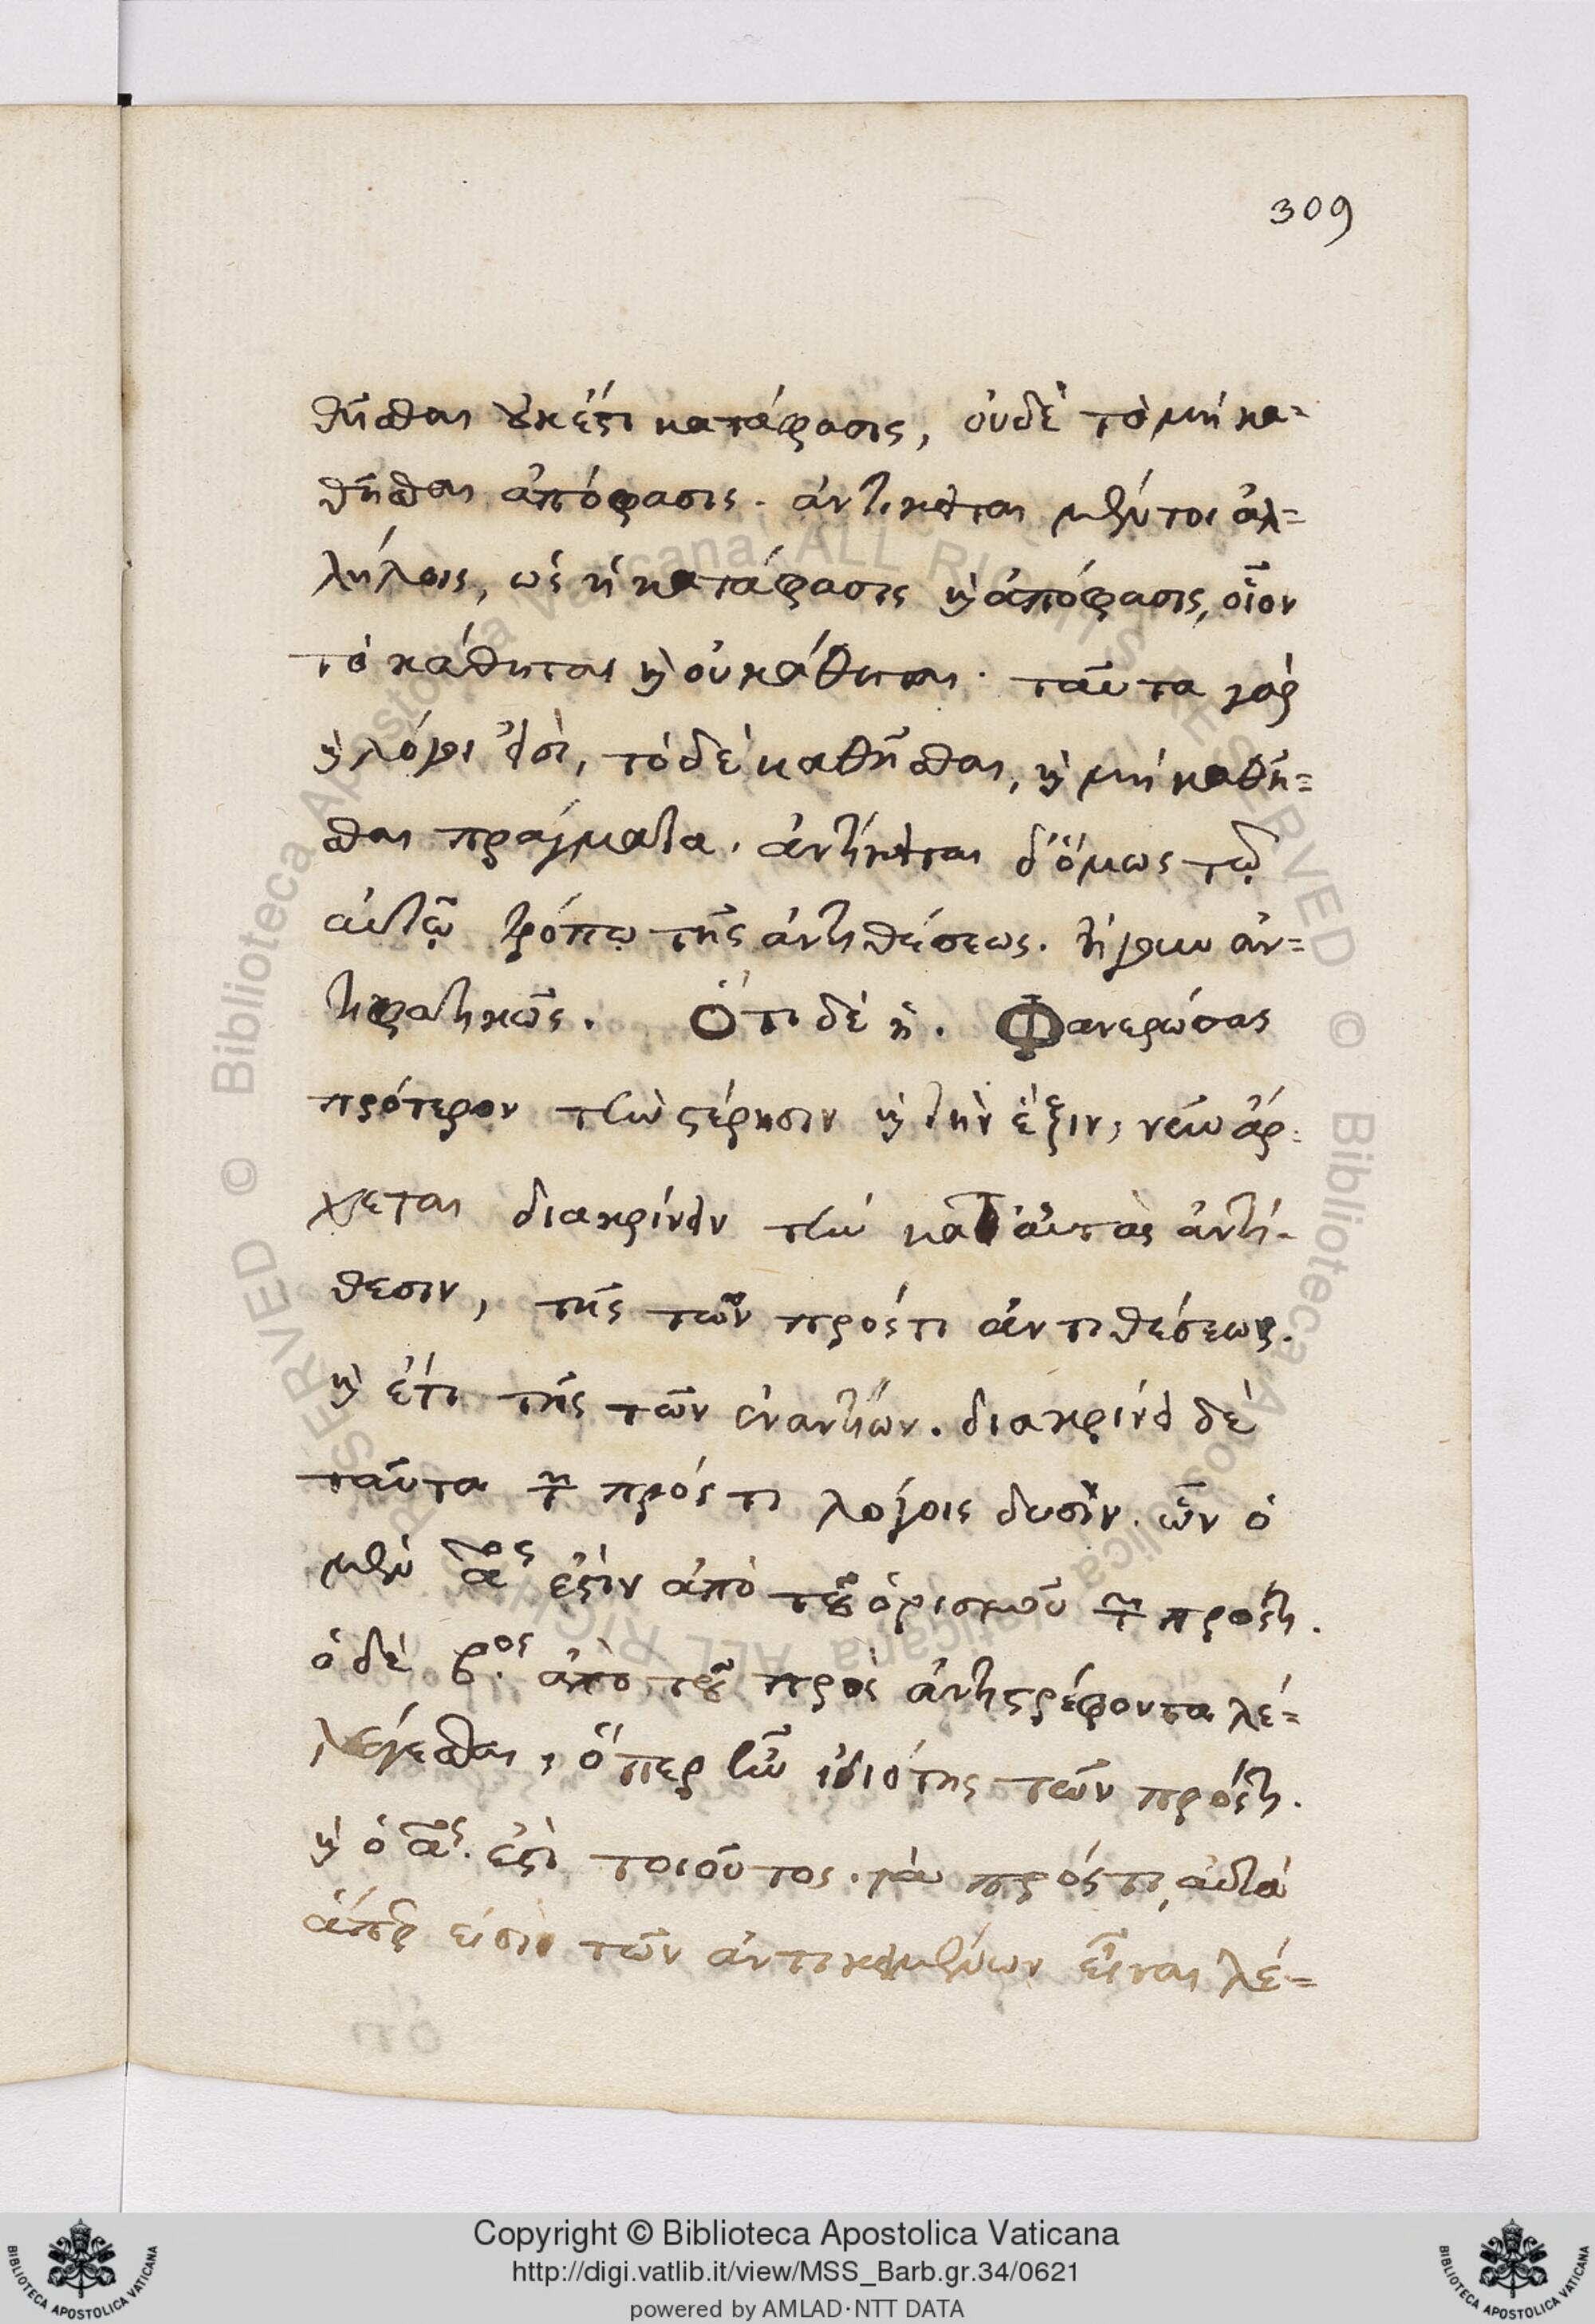 309
θῆσθαι οὐκ ἔστι κατάφασις, οὐδὲ τὸ μὴ κα=
θῆσθαι ἀπόφασις. ἀντίκειται μέντοι ἀλ=
λήλοις, ὡς ἡ κατάφασις καὶ ἀπόφασις, οἷον
τὸ κάθηται καὶ οὐ κάθηται. ταῦτα γὰρ
καὶ λόγοι εἰσὶ, τὸ δὲ καθῆσθαι, καὶ μὴ καθῆ=
σθαι πράγματα. ἀντίκειται δ' ὅμως τῷ
αὐτῷ τρόπῳ τῆς ἀντιθέσεως. ἤγουν ἀν=
τιφατικῶς. Ὅτι δὲ ἡ. Φανερώσας
πρότερον τὴν στέρησιν καὶ τὴν ἕξιν, νῦν ἄρ=
χεται διακρίνειν τὴν κατ' αὐτὰς ἀντί=
θεσιν, τῆς τῶν πρός τι ἀντιθέσεως.
καὶ ἔτι τῆς τῶν ἐναντίων. διακρίνει δὲ
ταῦτα τῶν πρός τι λόγοις δυσίν. ὧν ὁ
μὲν αος ἐστὶν ἀπὸ τοῦ ὁρισμοῦ τῶν πρός τι.
ὁ δὲ βος. ἀπὸ τοῦ πρὸς ἀντιστρέφοντα λέ=
λέγεσθαι, ὅπερ ἦν ἰδιότης τῶν πρός τι.
καὶ ὁ ας. ἐστὶ τοιοῦτος. τὰ πρός τι, αὐτὰ
ἅπερ εἰσὶ τῶν ἀντικειμένων εἶναι λέ=
Copyright © Biblioteca Apostolica Vaticana
http://digi.vatlib.it/view/MSS_Barb.gr.34/0621
powered by AMLAD·NTT DATA